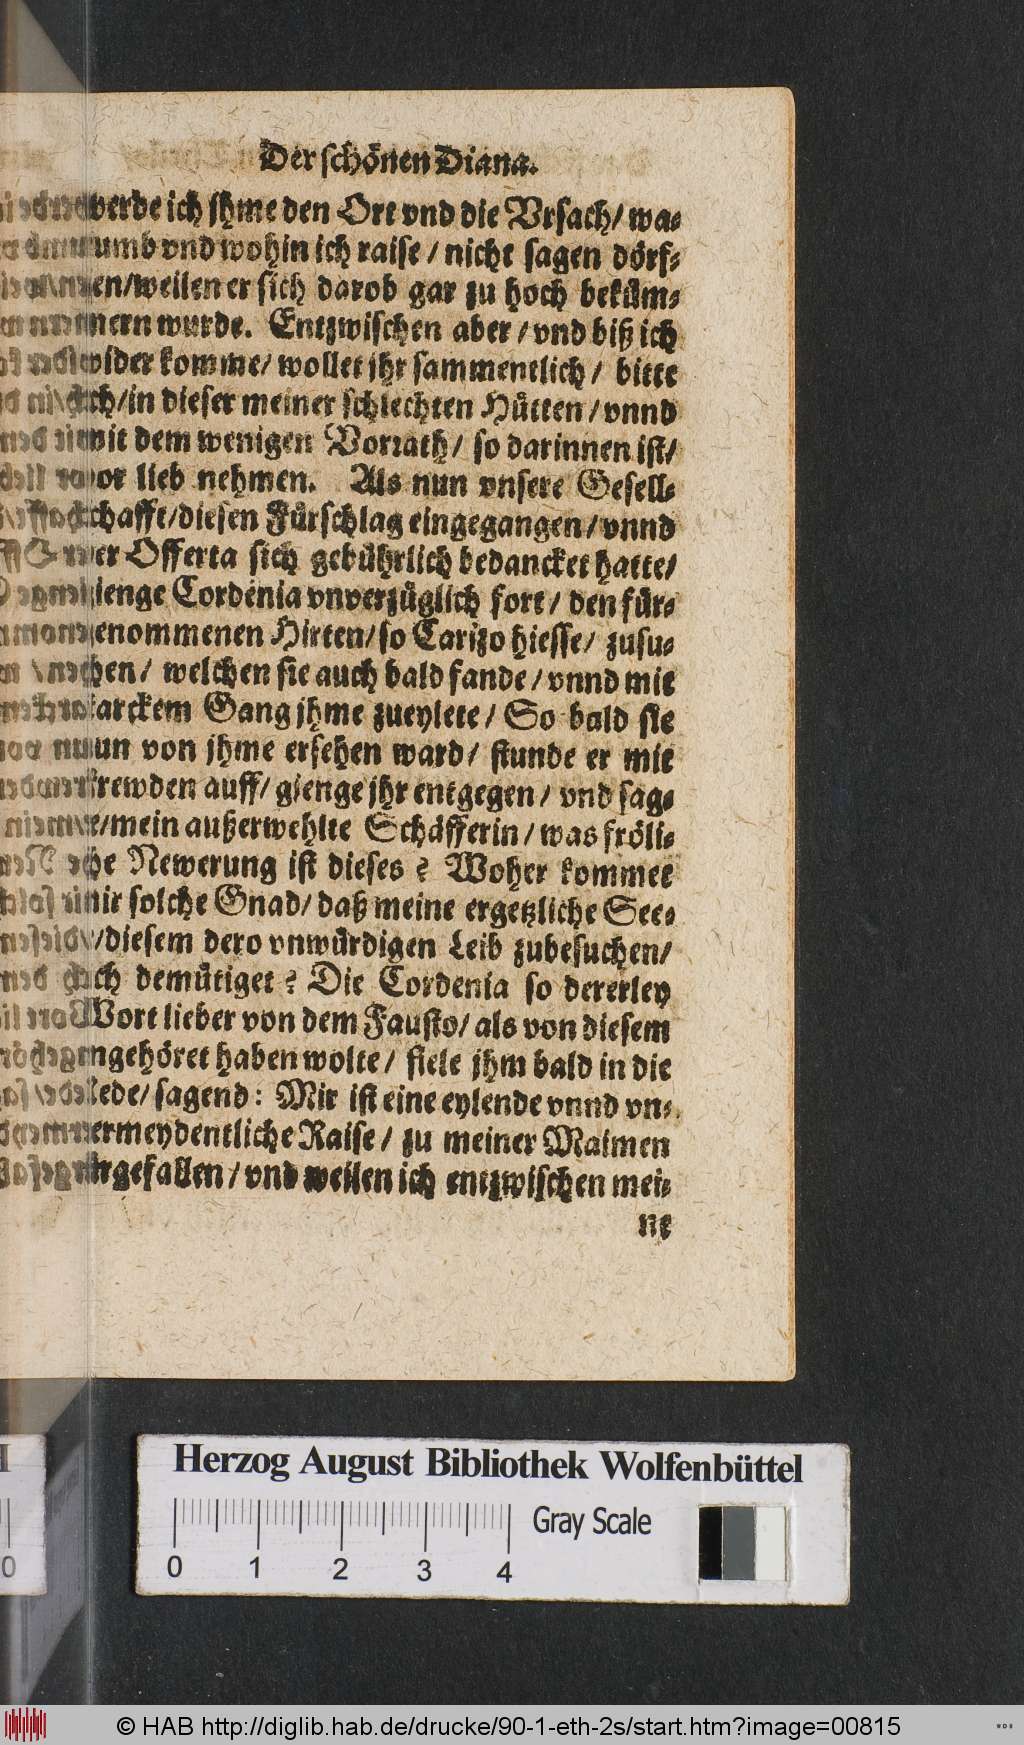 Der schönen Diana.
werde ich jhme den Ort vnd die Vrsach/ wa-
rumb vnd wohin ich raise / nicht sagen dörf-
fen/weilen er sich darob gar zu hoch beküm-
mern wurde. Entzwischen aber / vnd biß ich
wider komme/ wollet jhr sammentlich / bitte
ich/in dieser meiner schlechten Hütten / vnnd
mit dem wenigen Vorrath/ so darinnen ist/
vor lieb nehmen. Als nun vnsere Gesell-
schafft/diesen Fürschlag eingegangen / vnnd
der Offerta sich gebührlich bedancket hatte/
gienge Cordenia vnverzüglich fort / den für-
genommenen Hirten/so Carizo hiesse/ zusu-
chen/ welchen sie auch bald fande / vnnd mit
starckem Gang jhme zueylete / So bald sie
nun von jhme ersehen ward/ stunde er mit
frewden auff/ gienge jhr entgegen / vnd sag-
te/mein außerwehlte Schäfferin / was fröli-
che Newerung ist dieses ? Woher kommet
mir solche Gnad/ daß meine ergetzliche See-
le/diesem dero vnwürdigen Leib zubesuchen/
sich demütiget ? Die Cordenia so dererley
Wort lieber von dem Fausto/ als von diesem
angehöret haben wolte / fiele jhm bald in die
Rede/ sagend: Mir ist eine eylende vnnd vn-
vermeydentliche Raise / zu meiner Maimen
fürgefallen / vnd weilen ich entzwischen mei-
ne
Herzog August Bibliothek Wolfenbüttel
Gray Scale
0 1 2 3 4
© HAB http://diglib.hab.de/drucke/90-1-eth-2s/start.htm?image=00815